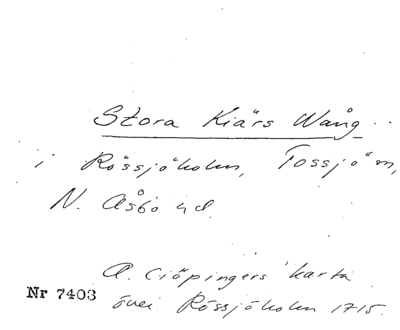 Stora Kiärs Wång
i Rössjöholm, Tossjö sn,
N. Åsbo hd.
A. Ciöpingers karta
Nr 7403
över Rössjöholm 1715.